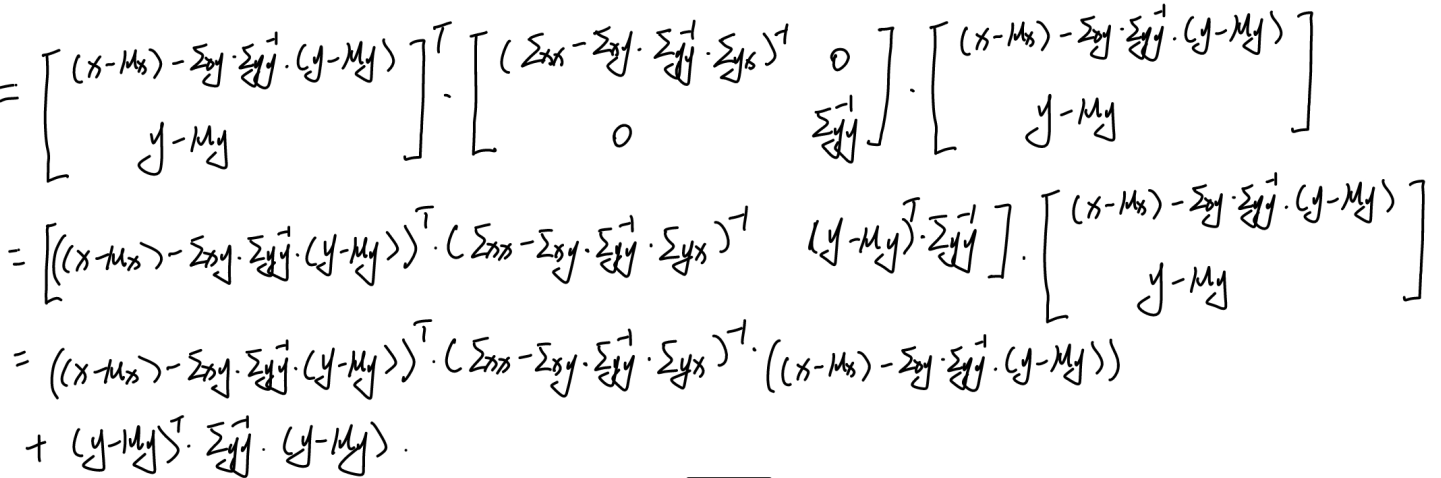 = [ (x-μx) - Σxy·Σyy⁻¹·(y-μy) ; y-μy ]ᵀ · [ (Σxx - Σxy·Σyy⁻¹·Σyx)⁻¹  0 ; 0  Σyy⁻¹ ] · [ (x-μx) - Σxy·Σyy⁻¹·(y-μy) ; y-μy ]
= [ ((x-μx) - Σxy·Σyy⁻¹·(y-μy))ᵀ·(Σxx - Σxy·Σyy⁻¹·Σyx)⁻¹  (y-μy)ᵀ·Σyy⁻¹ ] · [ (x-μx) - Σxy·Σyy⁻¹·(y-μy) ; y-μy ]
= ((x-μx) - Σxy·Σyy⁻¹·(y-μy))ᵀ·(Σxx - Σxy·Σyy⁻¹·Σyx)⁻¹·((x-μx) - Σxy·Σyy⁻¹·(y-μy))
+ (y-μy)ᵀ·Σyy⁻¹·(y-μy).